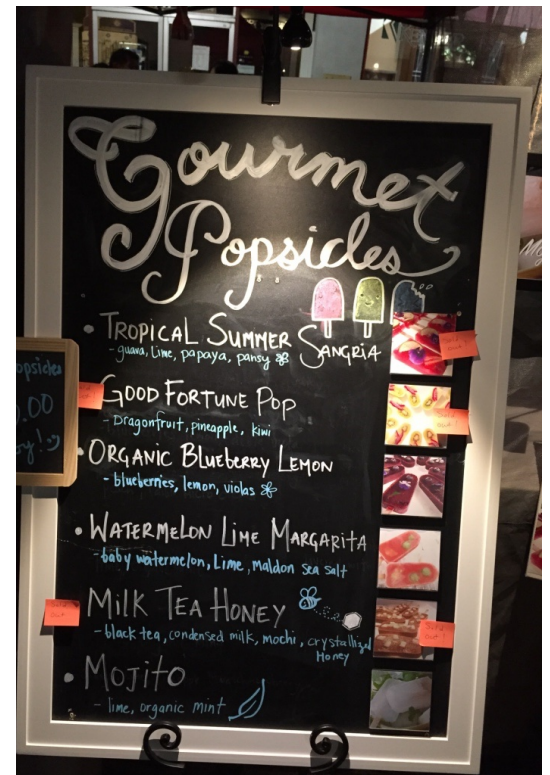 Gourmet
Popsicles
• Tropical Summer Sangria
- guava, lime, papaya, pansy
Good Fortune Pop
- Dragonfruit, pineapple, kiwi
• Organic Blueberry Lemon
- blueberries, lemon, violas
• Watermelon Lime Margarita
- baby watermelon, Lime, maldon sea salt
Milk Tea Honey
- black tea, condensed milk, mochi, crystallized
Honey
• Mojito
- lime, organic mint
opsicles
.00
SOLD
OUT!